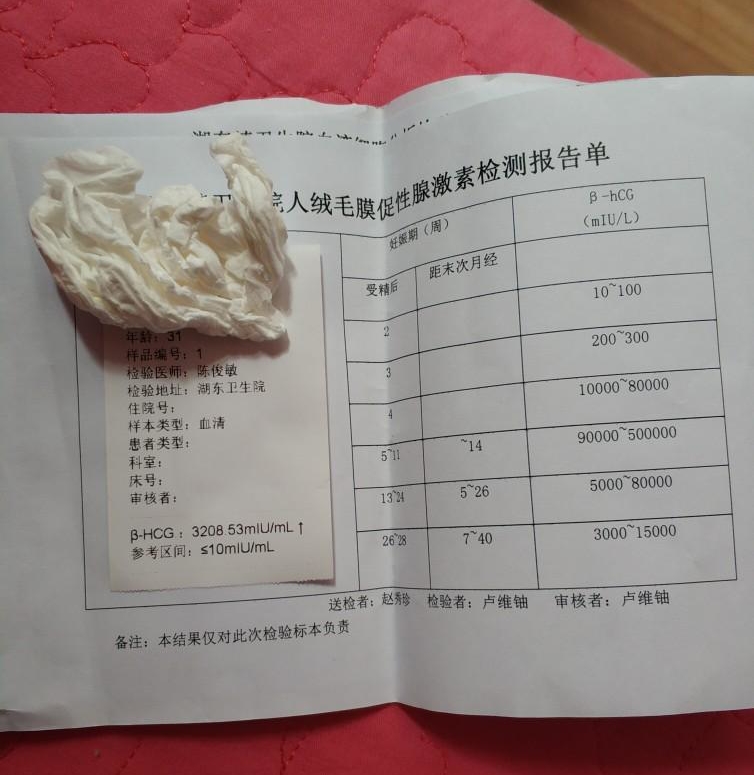 院人绒毛膜促性腺激素检测报告单
年龄: 31
样品编号: 1
检验医师: 陈俊敏
检验地址: 湖东卫生院
住院号:
样本类型: 血清
患者类型:
科室:
床号:
审核者:
β-HCG : 3208.53mIU/mL ↑
参考区间: ≤10mIU/mL
妊娠期（周） β-hCG
(mIU/L)
受精后 距末次月经
2 10~100
3 200~300
4 10000~80000
5~11 ~14 90000~500000
13~24 5~26 5000~80000
26~28 7~40 3000~15000
送检者: 赵秀珍 检验者: 卢维铀 审核者: 卢维铀
备注: 本结果仅对此次检验标本负责